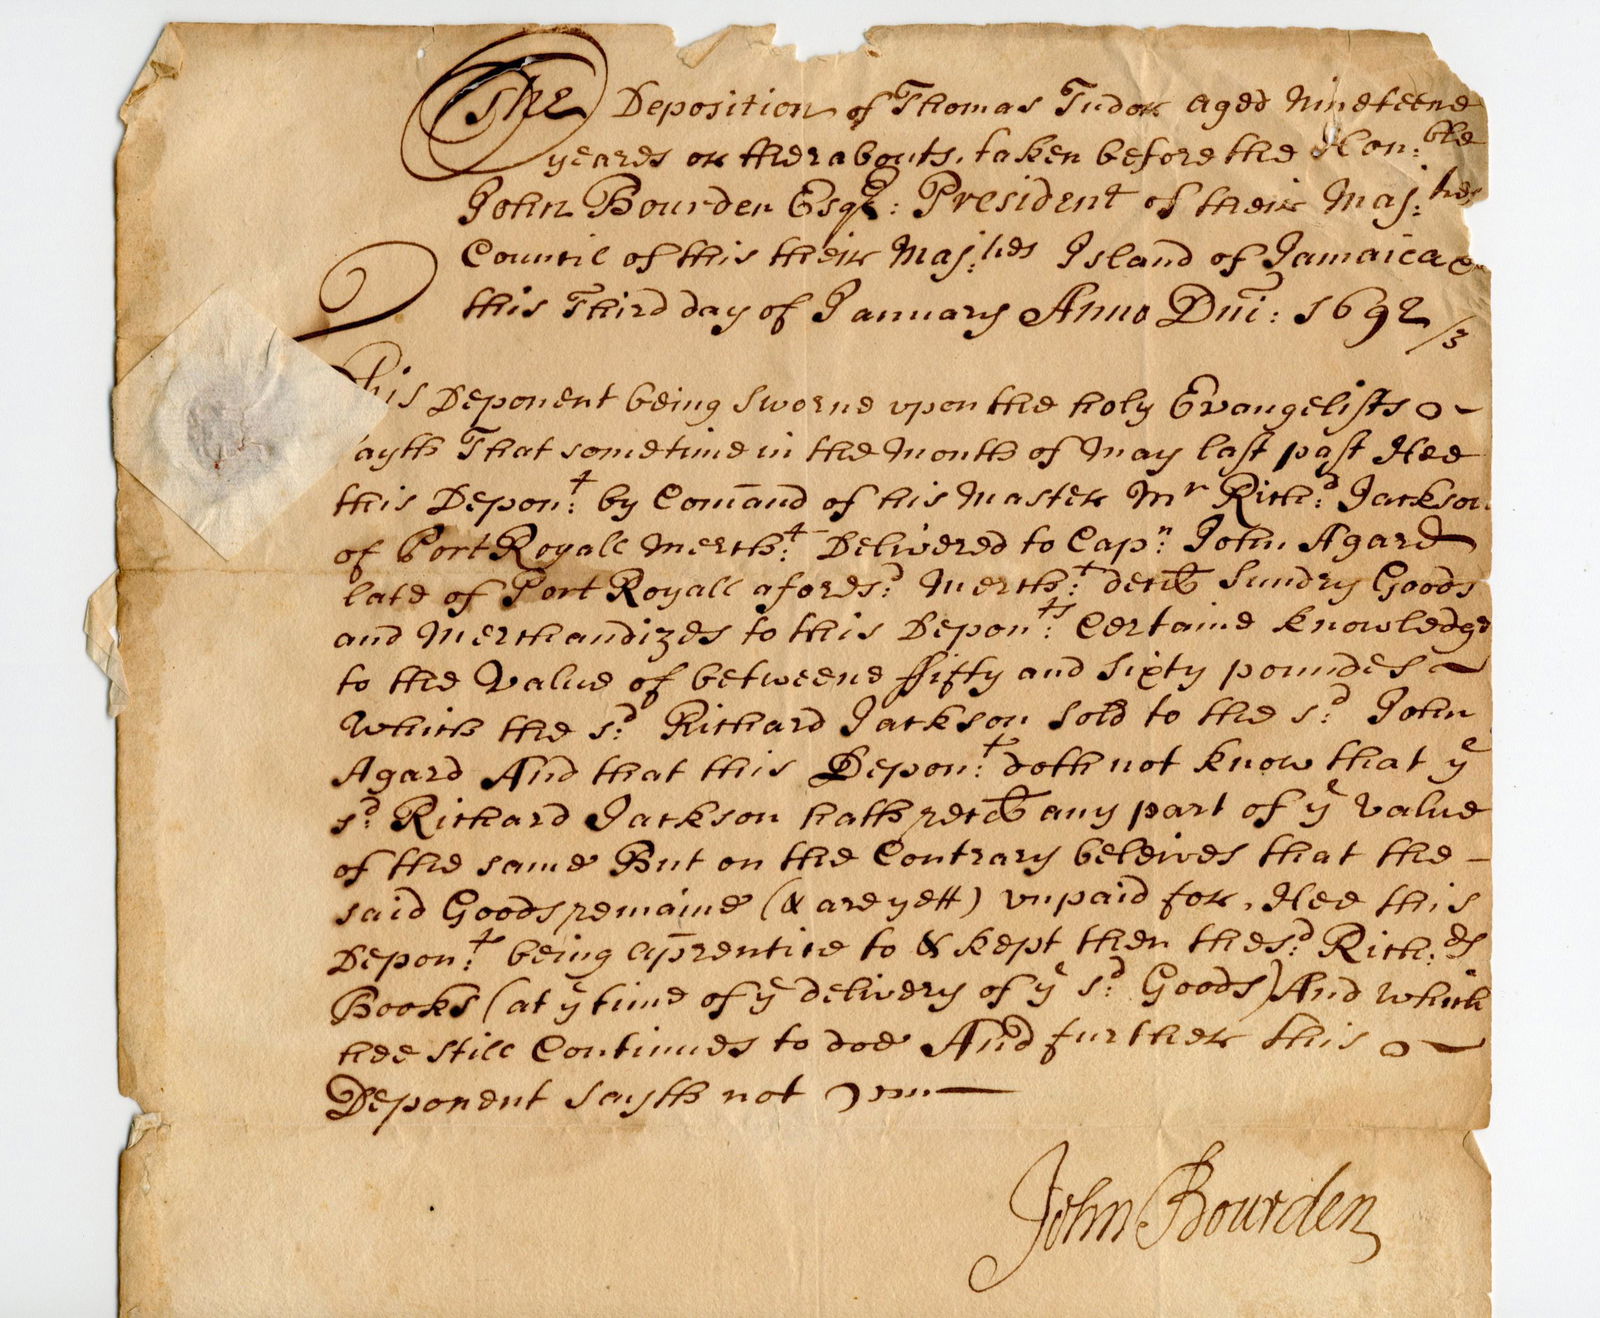 The Deposition of Thomas Tudor aged Nineteene
yeares or therabouts, taken before the Hon:ble
John Bourden Esqr: President of their Maj:ties
Councill of this their Maj:ties Island of Jamaica
this Third day of January Anno Dni: 1692/3
This Deponent being sworne vpon the holy Evangelists
sayth That sometime in the Month of May last past Hee
this Depon:t by Comand of his Master Mr Rich:d Jackson
of Port Royall Merch:t Delivered to Cap:n John Agard
late of Port Royall afores:d Merch:t decd Sundry Goods
and Merchandizes to this Depon:ts Certaine knowledge
to the Value of betweene ffifty and Sixty poundes
Which the s:d Richard Jackson Sold to the s:d John
Agard And that this Depon:t doth not know that ye
s:d Richard Jackson hath recd any part of ye Value
of the same But on the Contrary beleives that the
said Goods remaine (& are yett) vnpaid for, Hee this
Depon:t being aprentice to & kept then the s:d Rich:ds
Books (at ye time of ye delivery of ye s:d Goods) And which
hee still Continues to doe And further this
Deponent sayth not
John Bourden